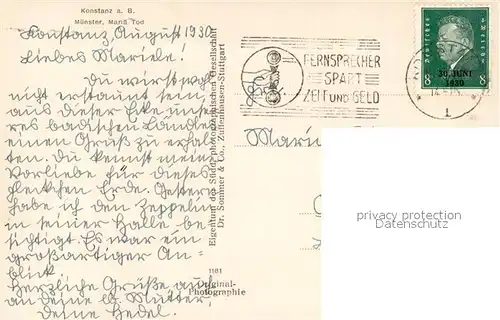 Konstanz a. B.
Münster, Mariä Tod
Konstanz, August 1930
Liebes Mariele!
Du wirst wohl
nicht erstaunt sein
aus dieser Ecke unse-
res badischen Ländles
einen Gruß zu erhal-
ten. Du kennst meine
Vorliebe für dieses
Fleckchen Erde. Gestern
habe ich den Zeppelin
in seiner Halle be-
sichtigt. Es war ein
großartiger An-
blick
Herzliche Grüße auch
an deine lb. Mutter,
deine Hedel.
Eigentum der Südd. photographischen Gesellschaft
Dr. Sommer & Co., Zuffenhausen-Stuttgart
1181
Original-
Photographie
FERNSPRECHER
SPART
ZEIT UND GELD
Deutsches Reich
8 8
30. JUNI
1930
1
Mari
privacy protection
Datenschutz